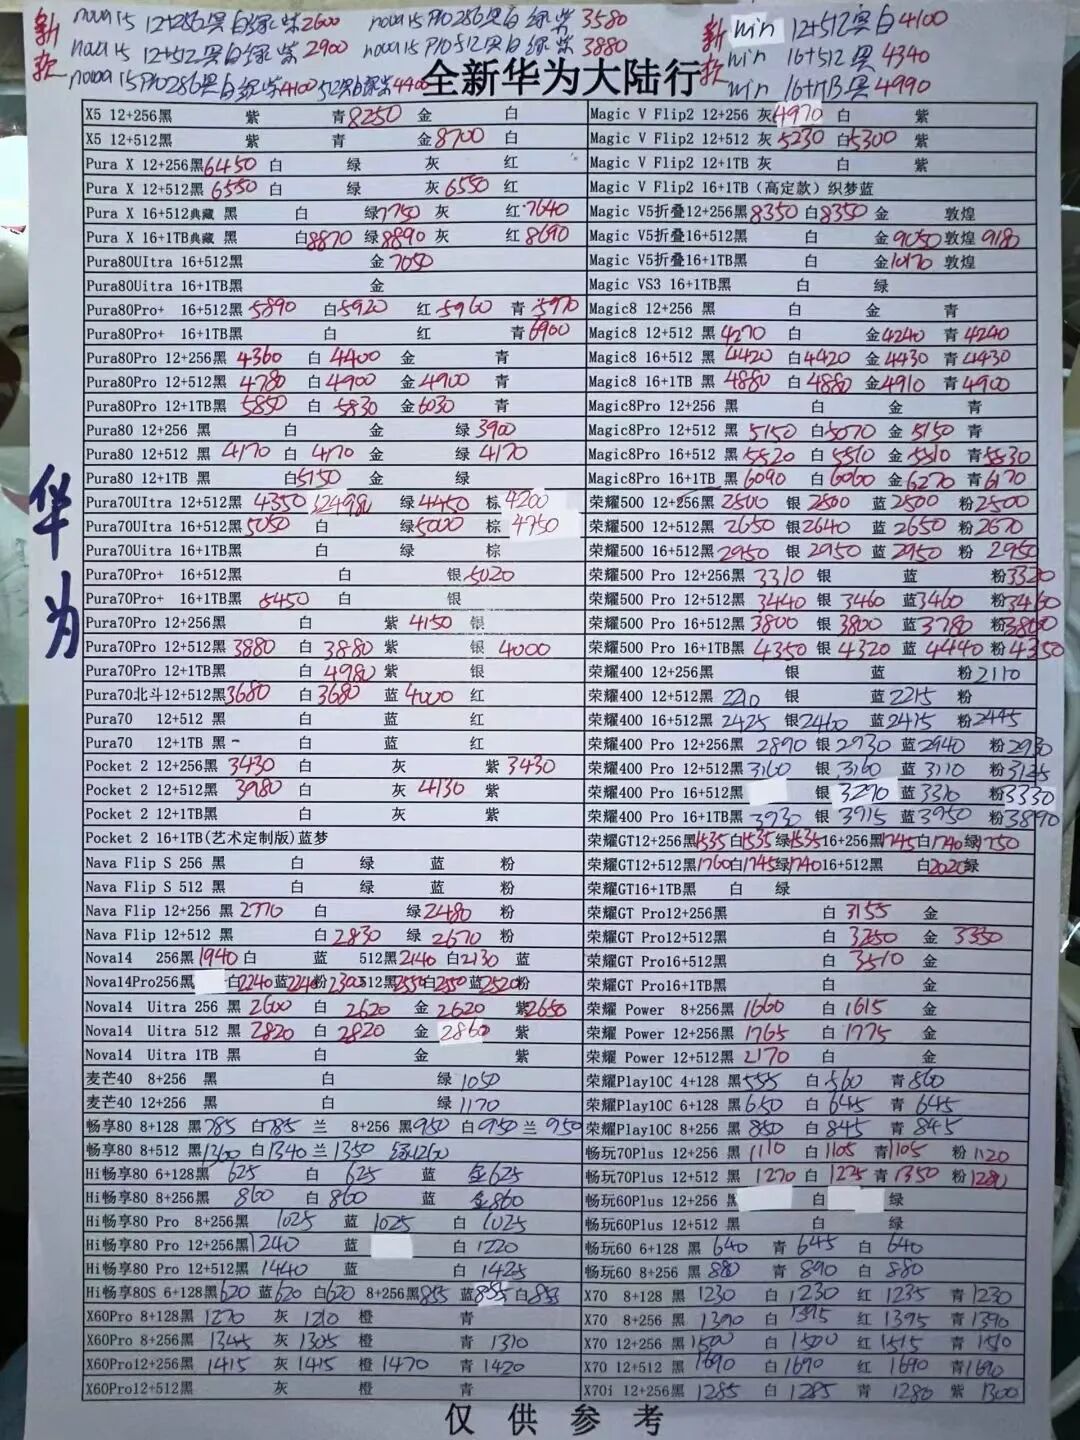 新款
nova15 12+256黑白绿紫2600 nova15Pro256黑白绿紫3580
nova15 12+512黑白绿紫2900 nova15Pro512黑白绿紫3880
黑白绿紫4100 512黑白绿紫4400
新款
win 12+512黑白4100
win 16+512黑4340
win 16+1TB黑4990
全新华为大陆行
华为
X5 12+256黑 紫 青8250 金 白
X5 12+512黑 紫 青 金8700 白
Pura X 12+256黑6450 白 绿 灰 红
Pura X 12+512黑6550 白 绿 灰6550 红
Pura X 16+512典藏 黑 白 绿7750 灰 红7640
Pura X 16+1TB典藏 黑 白8870 绿8890 灰 红8690
Pura80UItra 16+512黑 金7050
Pura80Uitra 16+1TB黑 金
Pura80Pro+ 16+512黑5890 白5920 红5960 青5970
Pura80Pro+ 16+1TB黑 白 红 青6900
Pura80Pro 12+256黑4360 白4400 金 青
Pura80Pro 12+512黑4780 白4900 金4900 青
Pura80Pro 12+1TB黑5850 白5830 金6030 青
Pura80 12+256 黑 白 金 绿3900
Pura80 12+512 黑4170 白4170 金 绿4170
Pura80 12+1TB 黑 白5150 金 绿
Pura70UItra 12+512黑4350 绿4450 棕4200
Pura70UItra 16+512黑5050 白 绿5000 棕4750
Pura70Uitra 16+1TB黑 白 绿 棕
Pura70Pro+ 16+512黑 白 银5020
Pura70Pro+ 16+1TB黑5450 白 银
Pura70Pro 12+256黑 白 紫4150 银
Pura70Pro 12+512黑3880 白3880 紫 银4000
Pura70Pro 12+1TB黑 白4980 紫 银
Pura70北斗12+512黑3680 白3680 蓝4000 红
Pura70 12+512 黑 白 蓝 红
Pura70 12+1TB 黑 白 蓝 红
Pocket 2 12+256黑3430 白 灰 紫3430
Pocket 2 12+512黑3980 白 灰4130 紫
Pocket 2 12+1TB黑 白 灰 紫
Pocket 2 16+1TB(艺术定制版)蓝梦
Nava Flip S 256 黑 白 绿 蓝 粉
Nava Flip S 512 黑 白 绿 蓝 粉
Nava Flip 12+256 黑2770 白 绿2480 粉
Nava Flip 12+512 黑 白2830 绿2670 粉
Nova14 256黑1940 白 蓝 512黑2140 白2130 蓝
Nova14Pro256黑 白2240蓝2240粉2300512黑2550白2550蓝2520粉
Nova14 Uitra 256 黑2600 白2620 金2620 紫2650
Nova14 Uitra 512 黑2820 白2820 金2860 紫
Nova14 Uitra 1TB 黑 白 金 紫
麦芒40 8+256 黑 白 绿1050
麦芒40 12+256 黑 白 绿1170
畅享80 8+128 黑785 白785 兰 8+256 黑950 白950兰950
畅享80 8+512 黑1300 白1340 兰1350 绿1260
Hi畅享80 6+128黑625 白625 蓝 金625
Hi畅享80 8+256黑860 白860 蓝 金860
Hi畅享80 Pro 8+256黑1025 蓝1025 白1025
Hi畅享80 Pro 12+256黑1240 蓝 白1220
Hi畅享80 Pro 12+512黑1440 蓝 白1425
Hi畅享80S 6+128黑620 蓝620 白620 8+256黑855 蓝855白855
X60Pro 8+128黑1270 灰1210 橙 青
X60Pro 8+256黑1345 灰1305 橙 青1310
X60Pro12+256黑1415 灰1415 橙1470 青1420
X60Pro12+512黑 灰 橙 青
Magic V Flip2 12+256 灰4970 白 紫
Magic V Flip2 12+512 灰5230 白5300 紫
Magic V Flip2 12+1TB 灰 白 紫
Magic V Flip2 16+1TB（高定款）织梦蓝
Magic V5折叠12+256黑8350白8350金 敦煌
Magic V5折叠16+512黑 白 金9050敦煌9180
Magic V5折叠16+1TB黑 白 金10170敦煌
Magic VS3 16+1TB黑 白 绿
Magic8 12+256 黑 白 金 青
Magic8 12+512 黑4270 白 金4240 青4240
Magic8 16+512 黑4420 白4420 金4430 青4430
Magic8 16+1TB 黑4880 白4880 金4910 青4900
Magic8Pro 12+256 黑 白 金 青
Magic8Pro 12+512 黑5150 白5070 金5150 青
Magic8Pro 16+512 黑5520 白5510 金5510 青5530
Magic8Pro 16+1TB 黑6090 白6060 金6270 青6170
荣耀500 12+256黑2500 银2500 蓝2500 粉2500
荣耀500 12+512黑2650 银2640 蓝2650 粉2670
荣耀500 16+512黑2950 银2950 蓝2950 粉2950
荣耀500 Pro 12+256黑3310 银 蓝 粉3320
荣耀500 Pro 12+512黑3440 银3460 蓝3460 粉3460
荣耀500 Pro 16+512黑3800 银3800 蓝3780 粉3800
荣耀500 Pro 16+1TB黑4350 银4320 蓝4440 粉4350
荣耀400 12+256黑 银 蓝 粉2110
荣耀400 12+512黑2210 银 蓝2215 粉
荣耀400 16+512黑2425 银2460 蓝2415 粉2445
荣耀400 Pro 12+256黑2890 银2930 蓝2940 粉2930
荣耀400 Pro 12+512黑3160 银3160 蓝3110 粉3125
荣耀400 Pro 16+512黑 银3290 蓝3310 粉3330
荣耀400 Pro 16+1TB黑3930 银3915 蓝3950 粉3890
荣耀GT12+256黑1535白1535绿1535 16+256黑1745白1740绿1750
荣耀GT12+512黑1760白1745绿1740 16+512黑 白2020绿
荣耀GT16+1TB黑 白 绿
荣耀GT Pro12+256黑 白3155 金
荣耀GT Pro12+512黑 白3250 金3330
荣耀GT Pro16+512黑 白3510 金
荣耀GT Pro16+1TB黑 白 金
荣耀 Power 8+256黑1660 白1615 金
荣耀 Power 12+256黑1765 白1775 金
荣耀 Power 12+512黑2170 白 金
荣耀Play10C 4+128 黑555 白560 青560
荣耀Play10C 6+128 黑650 白645 青645
荣耀Play10C 8+256 黑850 白845 青845
畅玩70Plus 12+256 黑1110 白1105 青1105 粉1120
畅玩70Plus 12+512 黑1270 白1275 青1350 粉1280
畅玩60Plus 12+256 黑 白 绿
畅玩60Plus 12+512 黑 白 绿
畅玩60 6+128 黑640 青645 白640
畅玩60 8+256 黑880 青890 白880
X70 8+128 黑1230 白1230 红1235 青1230
X70 8+256 黑1390 白1395 红1395 青1390
X70 12+256 黑1500 白1500 红1515 青1510
X70 12+512 黑1690 白1690 红1690 青1690
X70i 12+256黑1285 白1285 青1280 紫1300
仅供参考